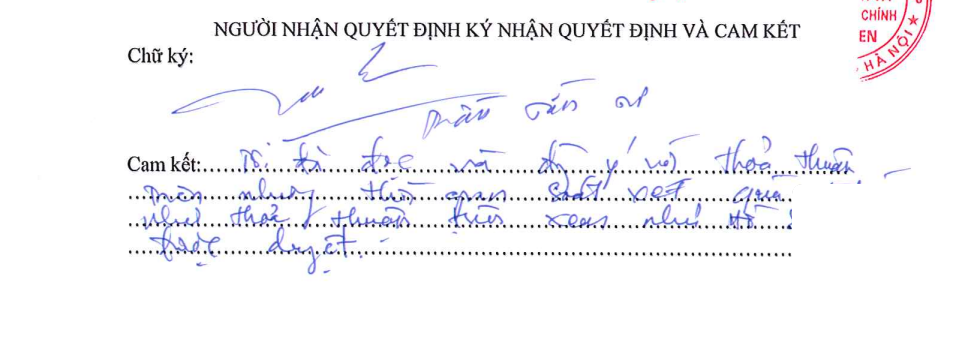 CHÍNH
EN
HÀ NỘI
NGƯỜI NHẬN QUYẾT ĐỊNH KÝ NHẬN QUYẾT ĐỊNH VÀ CAM KẾT
Chữ ký:
Trần Văn
Cam kết: Tôi đã đọc và đồng ý với thoả thuận
trên nhưng thời gian xét quá
như thoả thuận trên xem như tôi
được duyệt.